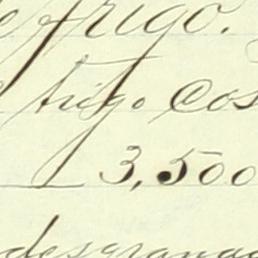 de trigo.
trigo cos
3,500
desgranad